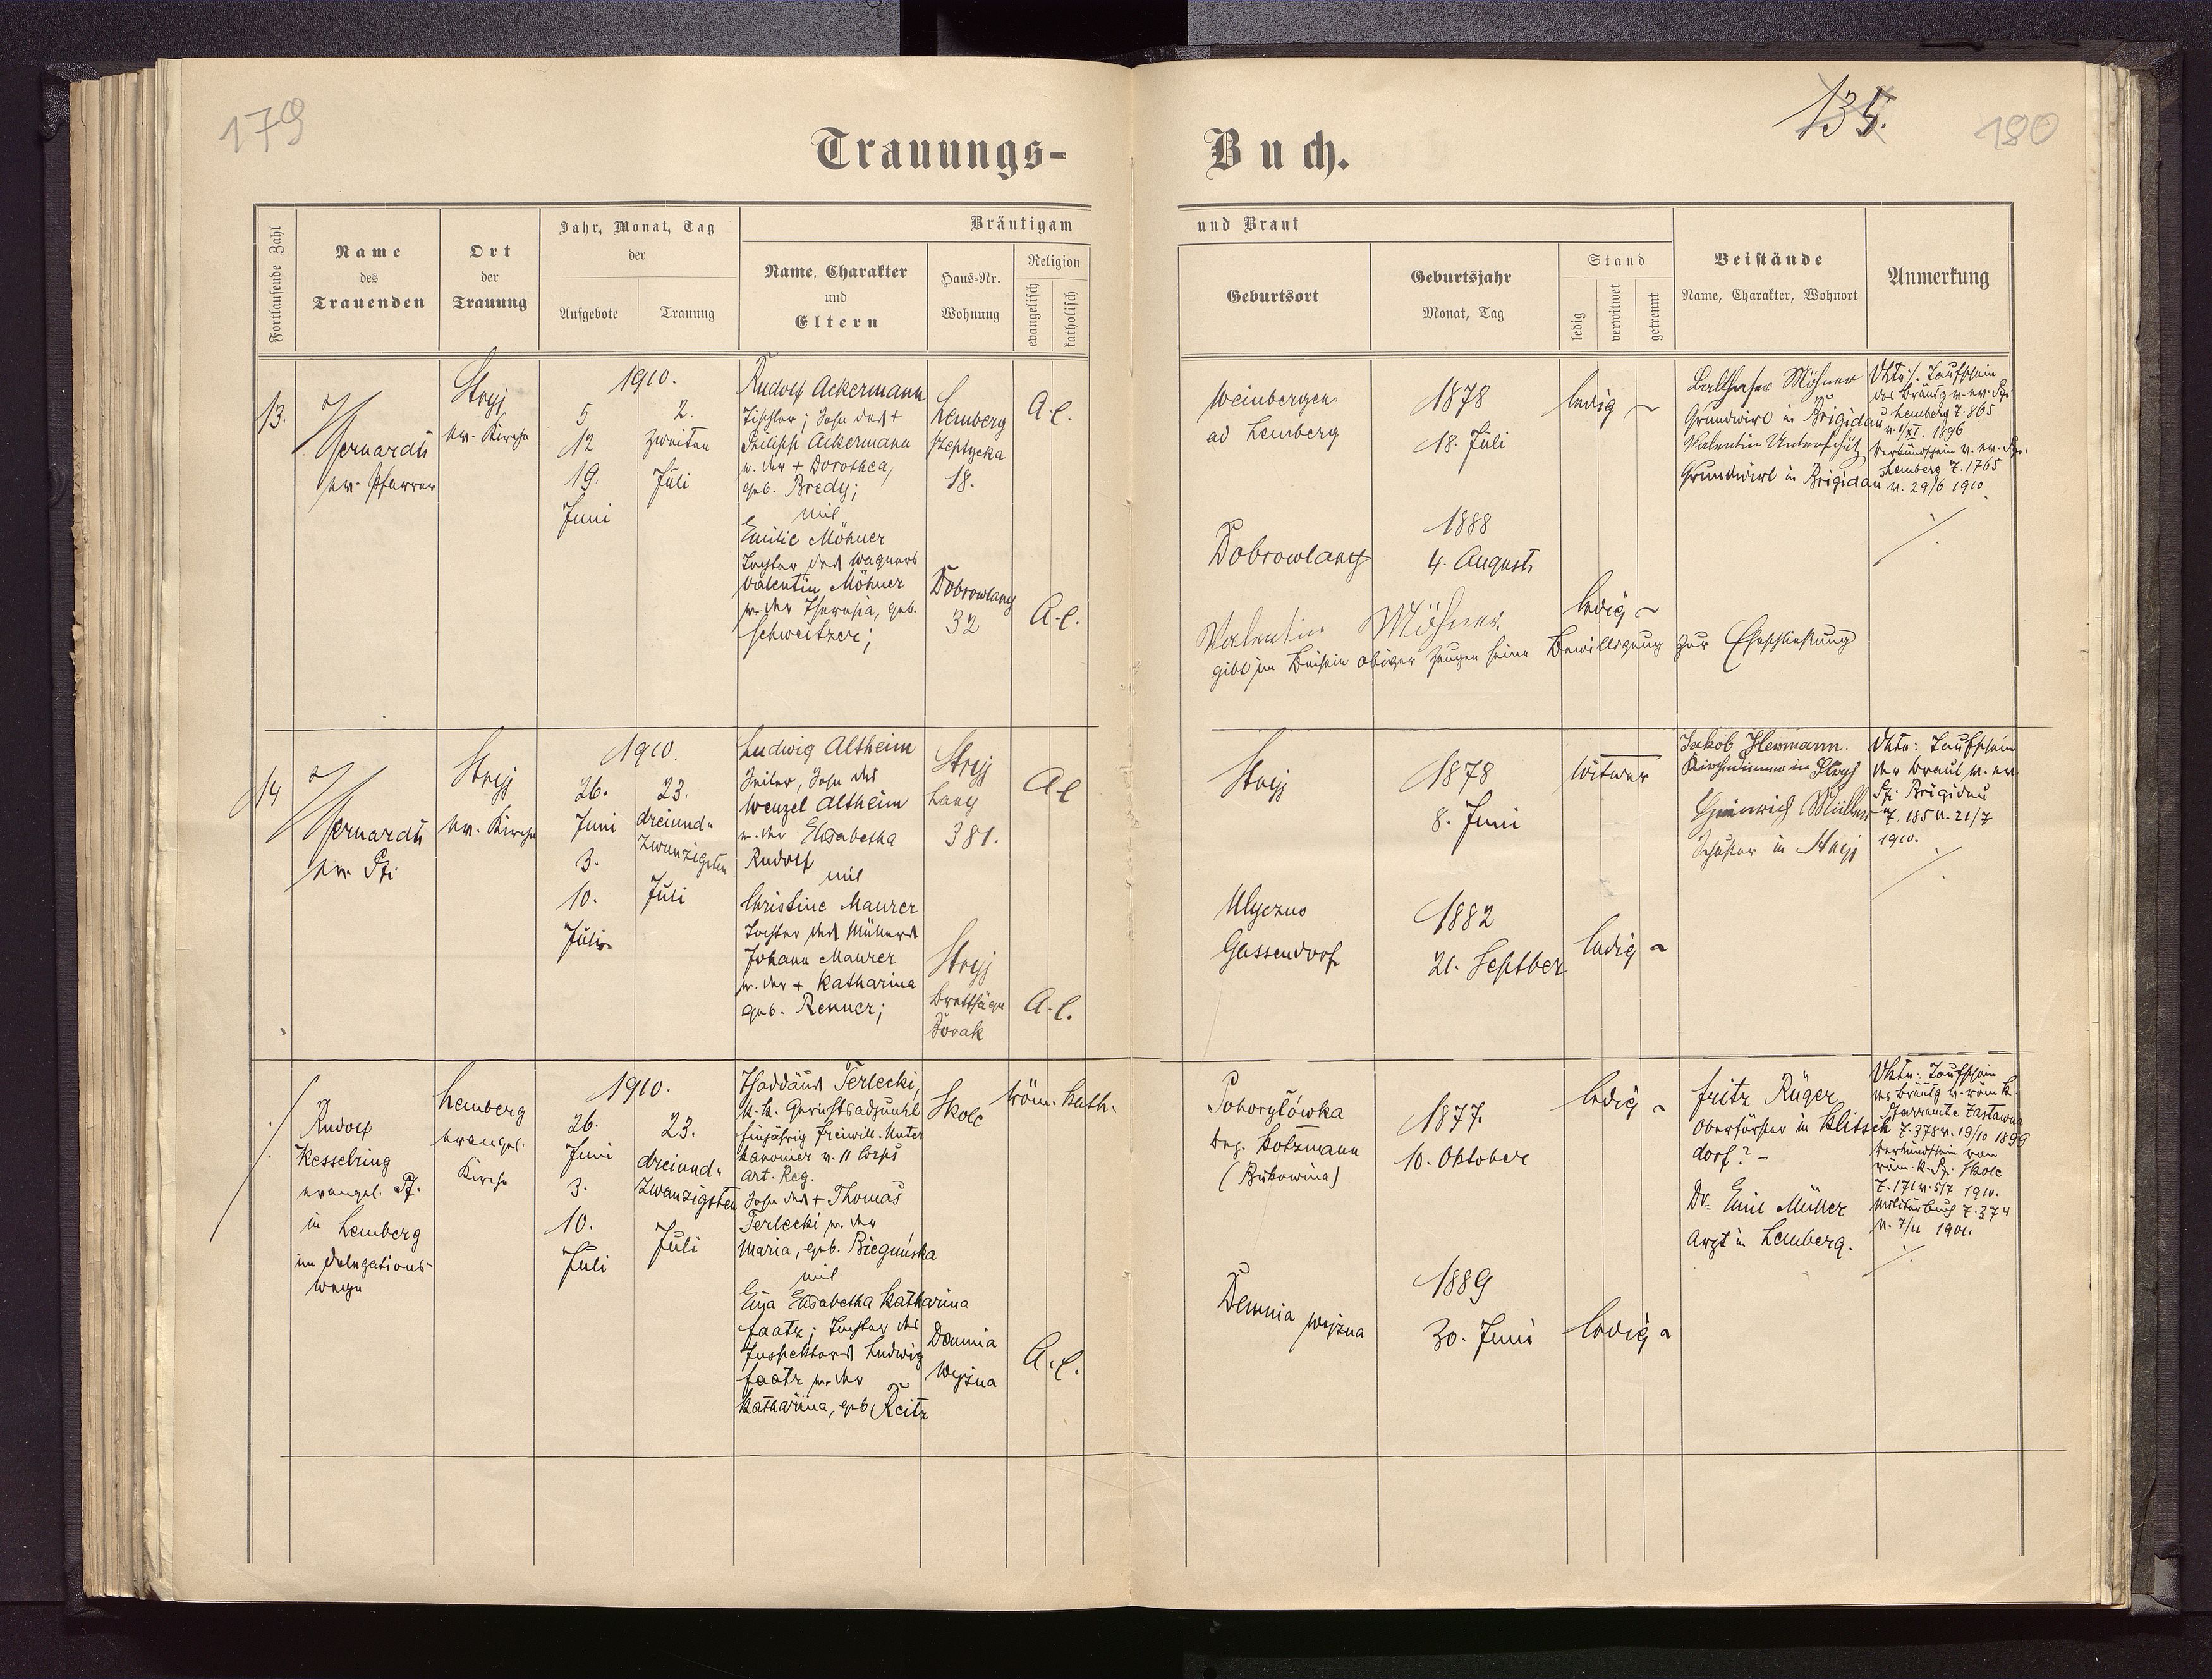 179
135.
180
Trauungs-
Buch.
Fortlaufende Zahl
Name
des
Trauenden
Ort
der
Trauung
Jahr, Monat, Tag
der
Aufgebote
Trauung
Bräutigam
Name, Charakter
und
Eltern
Haus-Nr.
Wohnung
Religion
evangelisch
katholisch
und Braut
Geburtsort
Geburtsjahr
Monat, Tag
Stand
ledig
verwitwet
getrennt
Beistände
Name, Charakter, Wohnort
Anmerkung
13.
ev. Pfarrer
Stryj
ev. Kirche
1910.
5
12
19.
Juni
2.
zweiten
Juli
Rudolf Ackermann
Tischler; Sohn des +
Philipp Ackermann
u. der + Dorothea,
geb. Bredy;
mit
Emilie Möhner
Tochter des Wagners
Valentin Möhner
u. der Theresia, geb.
Schweitzer;
Lemberg
Szeptycka
18.
Dobrowlany
32
A.C.
A.C.
Weinbergen
ad Lemberg
1878
18. Juli
ledig
Dobrowlany
1888
4. August
ledig
Valentin Möhner
gibt im Beisein obiger Zeugen seine Bewilligung zur Eheschließung
Balthasar Möhner
Grundwirt in Brigidau
Valentin Unterschütz
Grundwirt in Brigidau
Taufschein
des Bräutg v. ev. Pf.
Lemberg Z. 865
1896
Verkündschein v. ev. Pf.
Lemberg Z. 1765
v. 29/6 1910
14
ev. Pf.
Stryj
ev. Kirche
1910.
26.
Juni
3.
10.
Juli
23.
dreiund-
zwanzigsten
Juli
Ludwig Altheim
Seiler, Sohn des
Wenzel Altheim
u. der Elisabetha
Rudolf
mit
Christine Maurer
Tochter des Müllers
Johann Maurer
u. der + Katharina
geb. Renner;
Stryj
Lany
381.
Stryj
Brettsäge
A.C
A.C.
Stryj
1878
8. Juni
Witwer
Ulyczno
Gassendorf
1882
21. Septber
ledig
Jakob Hermann.
Kirchendiener in Stryj
Heinrich Müller
Schuster in Stryj
Taufschein
der Braut v. ev.
Pf. Brigidau
Z. 185 v. 21/7
1910.
Rudolf
Kesselring
evangel. Pf.
in Lemberg
im Delegations-
wege
Lemberg
evangel.
Kirche
1910.
26.
Juni
3.
10.
Juli
23.
dreiund-
zwanzigsten
Juli
Thaddäus Terlecki,
k.k. Gerichtsadjunkt
Einjährig freiwill. Unter
kanonier v. 11 Corps
Art. Reg.
Sohn des + Thomas
Terlecki u. der
Maria, geb. Biegunska
mit
Elisabetha Katharina
Faatz; Tochter des
Inspektors Ludwig
Faatz u. der
Katharina, geb. Reitz
Skole
Demnia
Wyzna
röm. kath.
A.C.
Pohorylówka
Bez. Kotzmann
(Bukowina)
1877
10. Oktober
ledig
Demnia wyzna
1889
30. Juni
ledig
Fritz Rüger
Oberförster in Klitsch-
dorf? -
Dr. Emil Müller
Arzt in Lemberg.
Taufschein
des Bräutg v. röm k.
Pfarramte Zastawna
Z. 378 v. 19/10 1899
Verkündschein vom
röm. k. Pf. Skole
Z. 171 v. 5/7 1910.
Militärbuch Z. 374